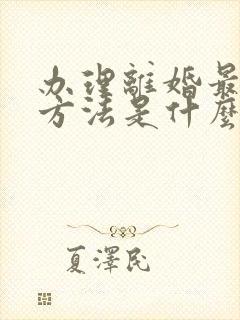 办理離婚最
方法是什麼
夏澤民